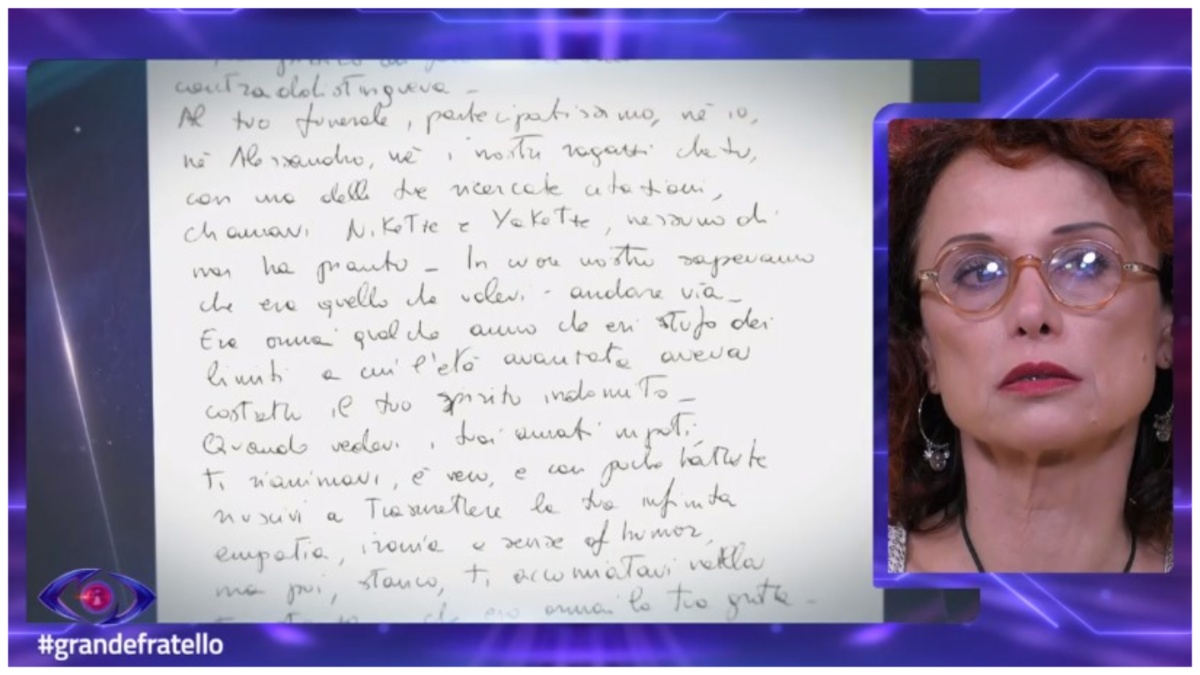 contraddistingueva -
Al tuo funerale, partecipatissimo, nè io,
nè Alessandro, nè i nostri ragazzi che tu,
con una delle tue ricercate citazioni,
chiamavi NiKette e YaKette, nessuno di
noi ha pianto - In cuor nostro sapevamo
che era quello che volevi - andare via -
Era ormai qualche anno che eri stufo dei
limiti a cui l'età avanzata aveva
costretto il tuo spirito indomito -
Quando vedevi i tuoi amati nipoti
ti rianimavi, è vero, e con poche battute
riuscivi a Trasmettere la tua infinita
empatia, ironia e sense of humor,
ma poi, stanco, ti accomiatavi nella
che era ormai la tua grotta -
#grandefratello